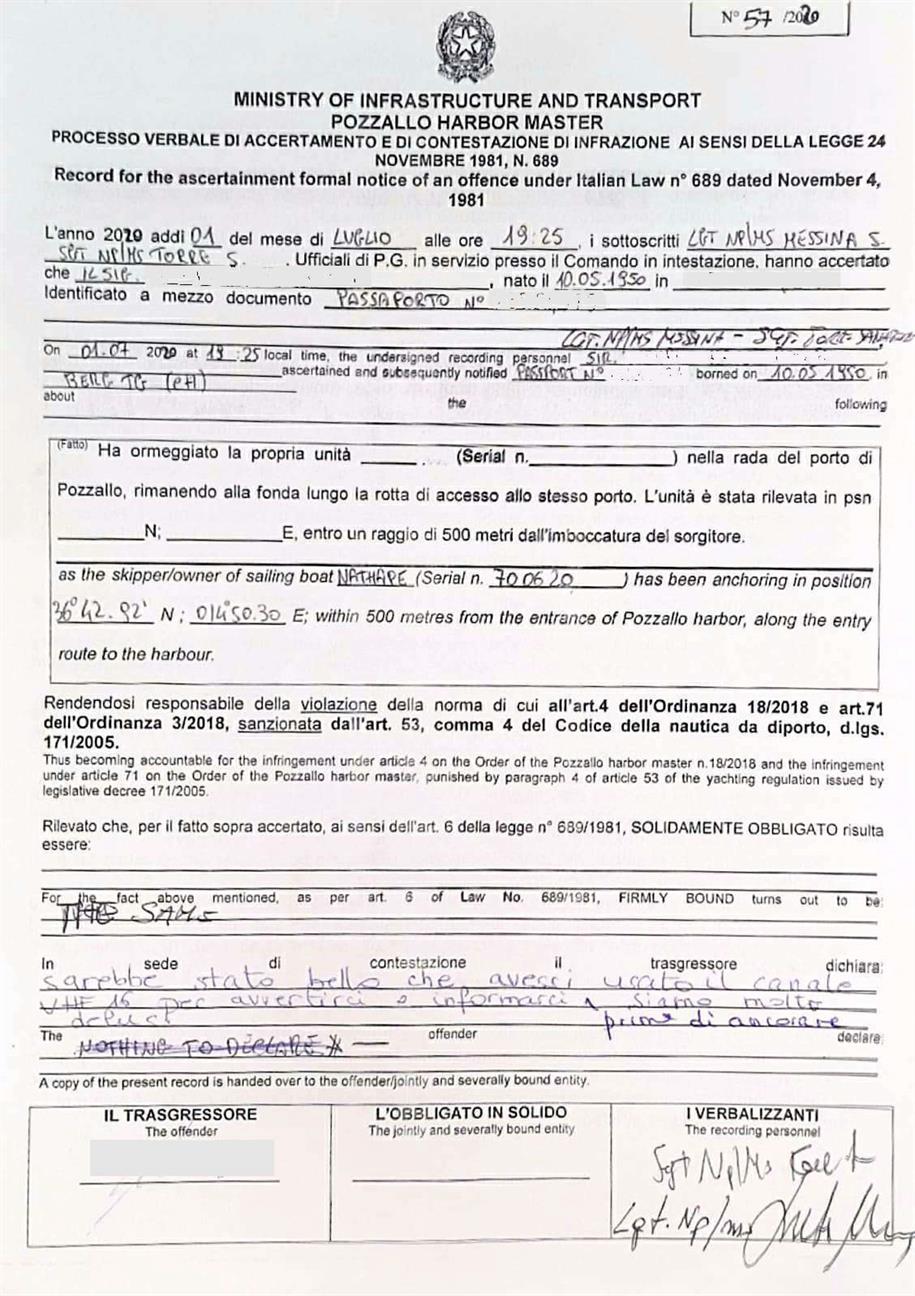 N° 57 /2020
MINISTRY OF INFRASTRUCTURE AND TRANSPORT
POZZALLO HARBOR MASTER
PROCESSO VERBALE DI ACCERTAMENTO E DI CONTESTAZIONE DI INFRAZIONE AI SENSI DELLA LEGGE 24
NOVEMBRE 1981, N. 689
Record for the ascertainment formal notice of an offence under Italian Law n° 689 dated November 4,
1981
L'anno 2020 addi 01 del mese di LUGLIO alle ore 19:25, i sottoscritti LGT NP/MS MESSINA S.
SGT NP/MS TORRE S. . Ufficiali di P.G. in servizio presso il Comando in intestazione, hanno accertato
che IL SIG. , nato il 10.05.1950 in
Identificato a mezzo documento PASSAPORTO N°
LGT. NP/MS MESSINA - SGT.
On 01.07 2020 at 19:25 local time, the undersigned recording personnel SIR.
BERG TG (CH) ascertained and subsequently notified PASSPORT N° borned on 10.05 1950 in
about the following
(Fatto) Ha ormeggiato la propria unità (Serial n. ) nella rada del porto di
Pozzallo, rimanendo alla fonda lungo la rotta di accesso allo stesso porto. L'unità è stata rilevata in psn
N; E, entro un raggio di 500 metri dall'imboccatura del sorgitore.
as the skipper/owner of sailing boat (Serial n. 700620 ) has been anchoring in position
36° 42. 92' N ; 014°50.30 E; within 500 metres from the entrance of Pozzallo harbor, along the entry
route to the harbour.
Rendendosi responsabile della violazione della norma di cui all'art.4 dell'Ordinanza 18/2018 e art.71
dell'Ordinanza 3/2018, sanzionata dall'art. 53, comma 4 del Codice della nautica da diporto, d.lgs.
171/2005.
Thus becoming accountable for the infringement under article 4 on the Order of the Pozzallo harbor master n.18/2018 and the infringement
under article 71 on the Order of the Pozzallo harbor master, punished by paragraph 4 of article 53 of the yachting regulation issued by
legislative decree 171/2005.
Rilevato che, per il fatto sopra accertato, ai sensi dell'art. 6 della legge n° 689/1981, SOLIDAMENTE OBBLIGATO risulta
essere:
For the fact above mentioned, as per art. 6 of Law No. 689/1981, FIRMLY BOUND turns out to be:
THE SAME
In sede di contestazione il trasgressore dichiara:
sarebbe stato bello che avessi usato il canale
VHF 16 per avvertirci e informarci siamo molto
delusi prima di ancorare
The NOTHING TO DECLARE offender declare:
A copy of the present record is handed over to the offender/jointly and severally bound entity.
IL TRASGRESSORE
The offender
L'OBBLIGATO IN SOLIDO
The jointly and severally bound entity
I VERBALIZZANTI
The recording personnel
Sgt Np/Ms
Lgt. Np/ms